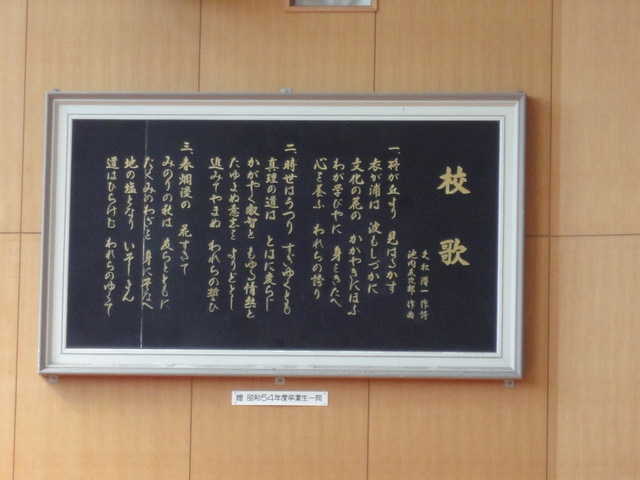 校歌
久松潜一 作詩
池内友次郎 作曲
一、祈が丘より 見はるかす
衣が浦は 波もしづかに
文化の花の かがやきにほふ
わが学びやに 身をきたへ
心を養ふ われらの誇り
二、時世はうつり すぎゆくとも
真理の道は とはに変らじ
かがやく叡智と もゆる情熱と
たゆまぬ意志を よりどとし
進みてやまぬ われらの誓ひ
三、春烟渡の 花すぎて
みのりの秋は 麦らとともに
たくみのわざを 身にそなへ
地の塩となり いそしまん
道はひらけむ われらのゆくて
贈 昭和54年度卒業生一同